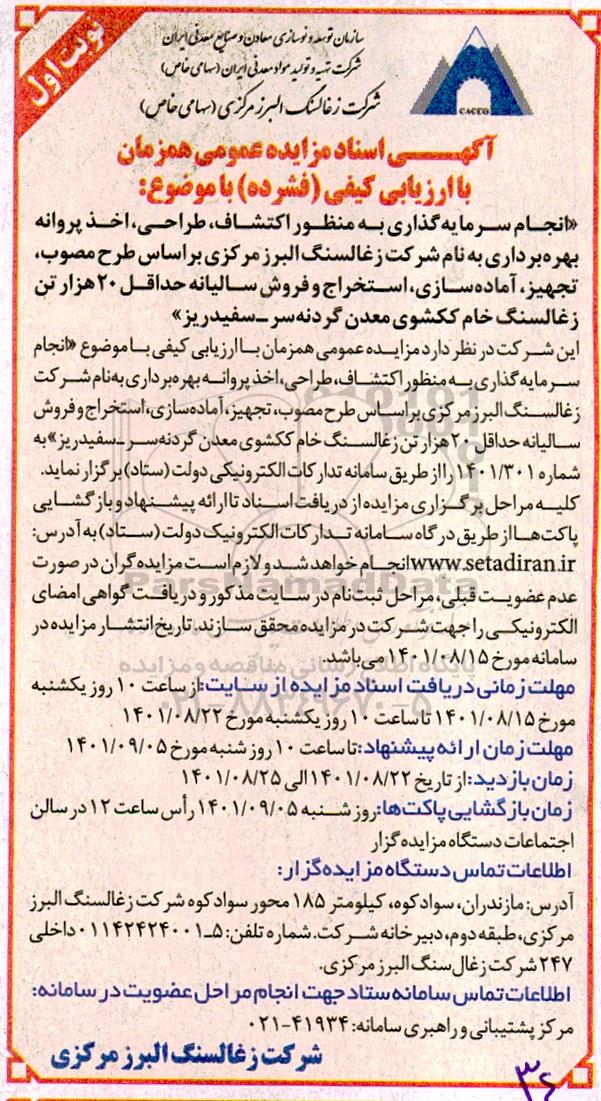 نوبت اول
سازمان توسعه و نوسازی معادن و صنایع معدنی ایران
شرکت تهیه و تولید مواد معدنی ایران (سهامی خاص)
شرکت زغالسنگ البرز مرکزی (سهامی خاص)
CACCO
آگهی اسناد مزایده عمومی همزمان
با ارزیابی کیفی (فشرده) با موضوع:
«انجام سرمایه‌گذاری به منظور اکتشاف، طراحی، اخذ پروانه
بهره‌برداری به نام شرکت زغالسنگ البرز مرکزی براساس طرح مصوب،
تجهیز، آماده‌سازی، استخراج و فروش سالیانه حداقل ۲۰ هزار تن
زغالسنگ خام ککشوی معدن گردنه‌سر ـ سفیدریز»
این شرکت در نظر دارد مزایده عمومی همزمان با ارزیابی کیفی با موضوع «انجام
سرمایه‌گذاری به منظور اکتشاف، طراحی، اخذ پروانه بهره‌برداری به‌نام شرکت
زغالسنگ البرز مرکزی براساس طرح مصوب، تجهیز، آماده‌سازی، استخراج و فروش
سالیانه حداقل ۲۰ هزار تن زغالسنگ خام ککشوی معدن گردنه‌سر ـ سفیدریز» به
شماره ۱۴۰۱/۳۰۱ را از طریق سامانه تدارکات الکترونیکی دولت (ستاد) برگزار نماید.
کلیه مراحل برگزاری مزایده از دریافت اسناد تا ارائه پیشنهاد و بازگشایی
پاکت‌ها از طریق درگاه سامانه تدارکات الکترونیک دولت (ستاد) به آدرس:
www.setadiran.ir انجام خواهد شد و لازم است مزایده‌گران در صورت
عدم عضویت قبلی، مراحل ثبت‌نام در سایت مذکور و دریافت گواهی امضای
الکترونیکی را جهت شرکت در مزایده محقق سازند. تاریخ انتشار مزایده در
سامانه مورخ ۱۴۰۱/۰۸/۱۵ می‌باشد.
مهلت زمانی دریافت اسناد مزایده از سایت: از ساعت ۱۰ روز یکشنبه
مورخ ۱۴۰۱/۰۸/۱۵ تا ساعت ۱۰ روز یکشنبه مورخ ۱۴۰۱/۰۸/۲۲
مهلت زمان ارائه پیشنهاد: تا ساعت ۱۰ روز شنبه مورخ ۱۴۰۱/۰۹/۰۵
زمان بازدید: از تاریخ ۱۴۰۱/۰۸/۲۲ الی ۱۴۰۱/۰۸/۲۵
زمان بازگشایی پاکت‌ها: روز شنبه ۱۴۰۱/۰۹/۰۵ رأس ساعت ۱۲ در سالن
اجتماعات دستگاه مزایده‌گزار
اطلاعات تماس دستگاه مزایده‌گزار:
آدرس: مازندران، سوادکوه، کیلومتر ۱۸۵ محور سوادکوه شرکت زغالسنگ البرز
مرکزی، طبقه دوم، دبیرخانه شرکت. شماره تلفن: ۵ـ۰۱۱۴۲۴۲۴۰۰۱ داخلی
۲۴۷ شرکت زغال سنگ البرز مرکزی.
اطلاعات تماس سامانه ستاد جهت انجام مراحل عضویت در سامانه:
مرکز پشتیبانی و راهبری سامانه: ۴۱۹۳۴-۰۲۱
شرکت زغالسنگ البرز مرکزی
ParsNamadData
پایگاه اطلاع رسانی مناقصه و مزایده
۰۲۱-۸۸۳۴۹۶۷۰-۵